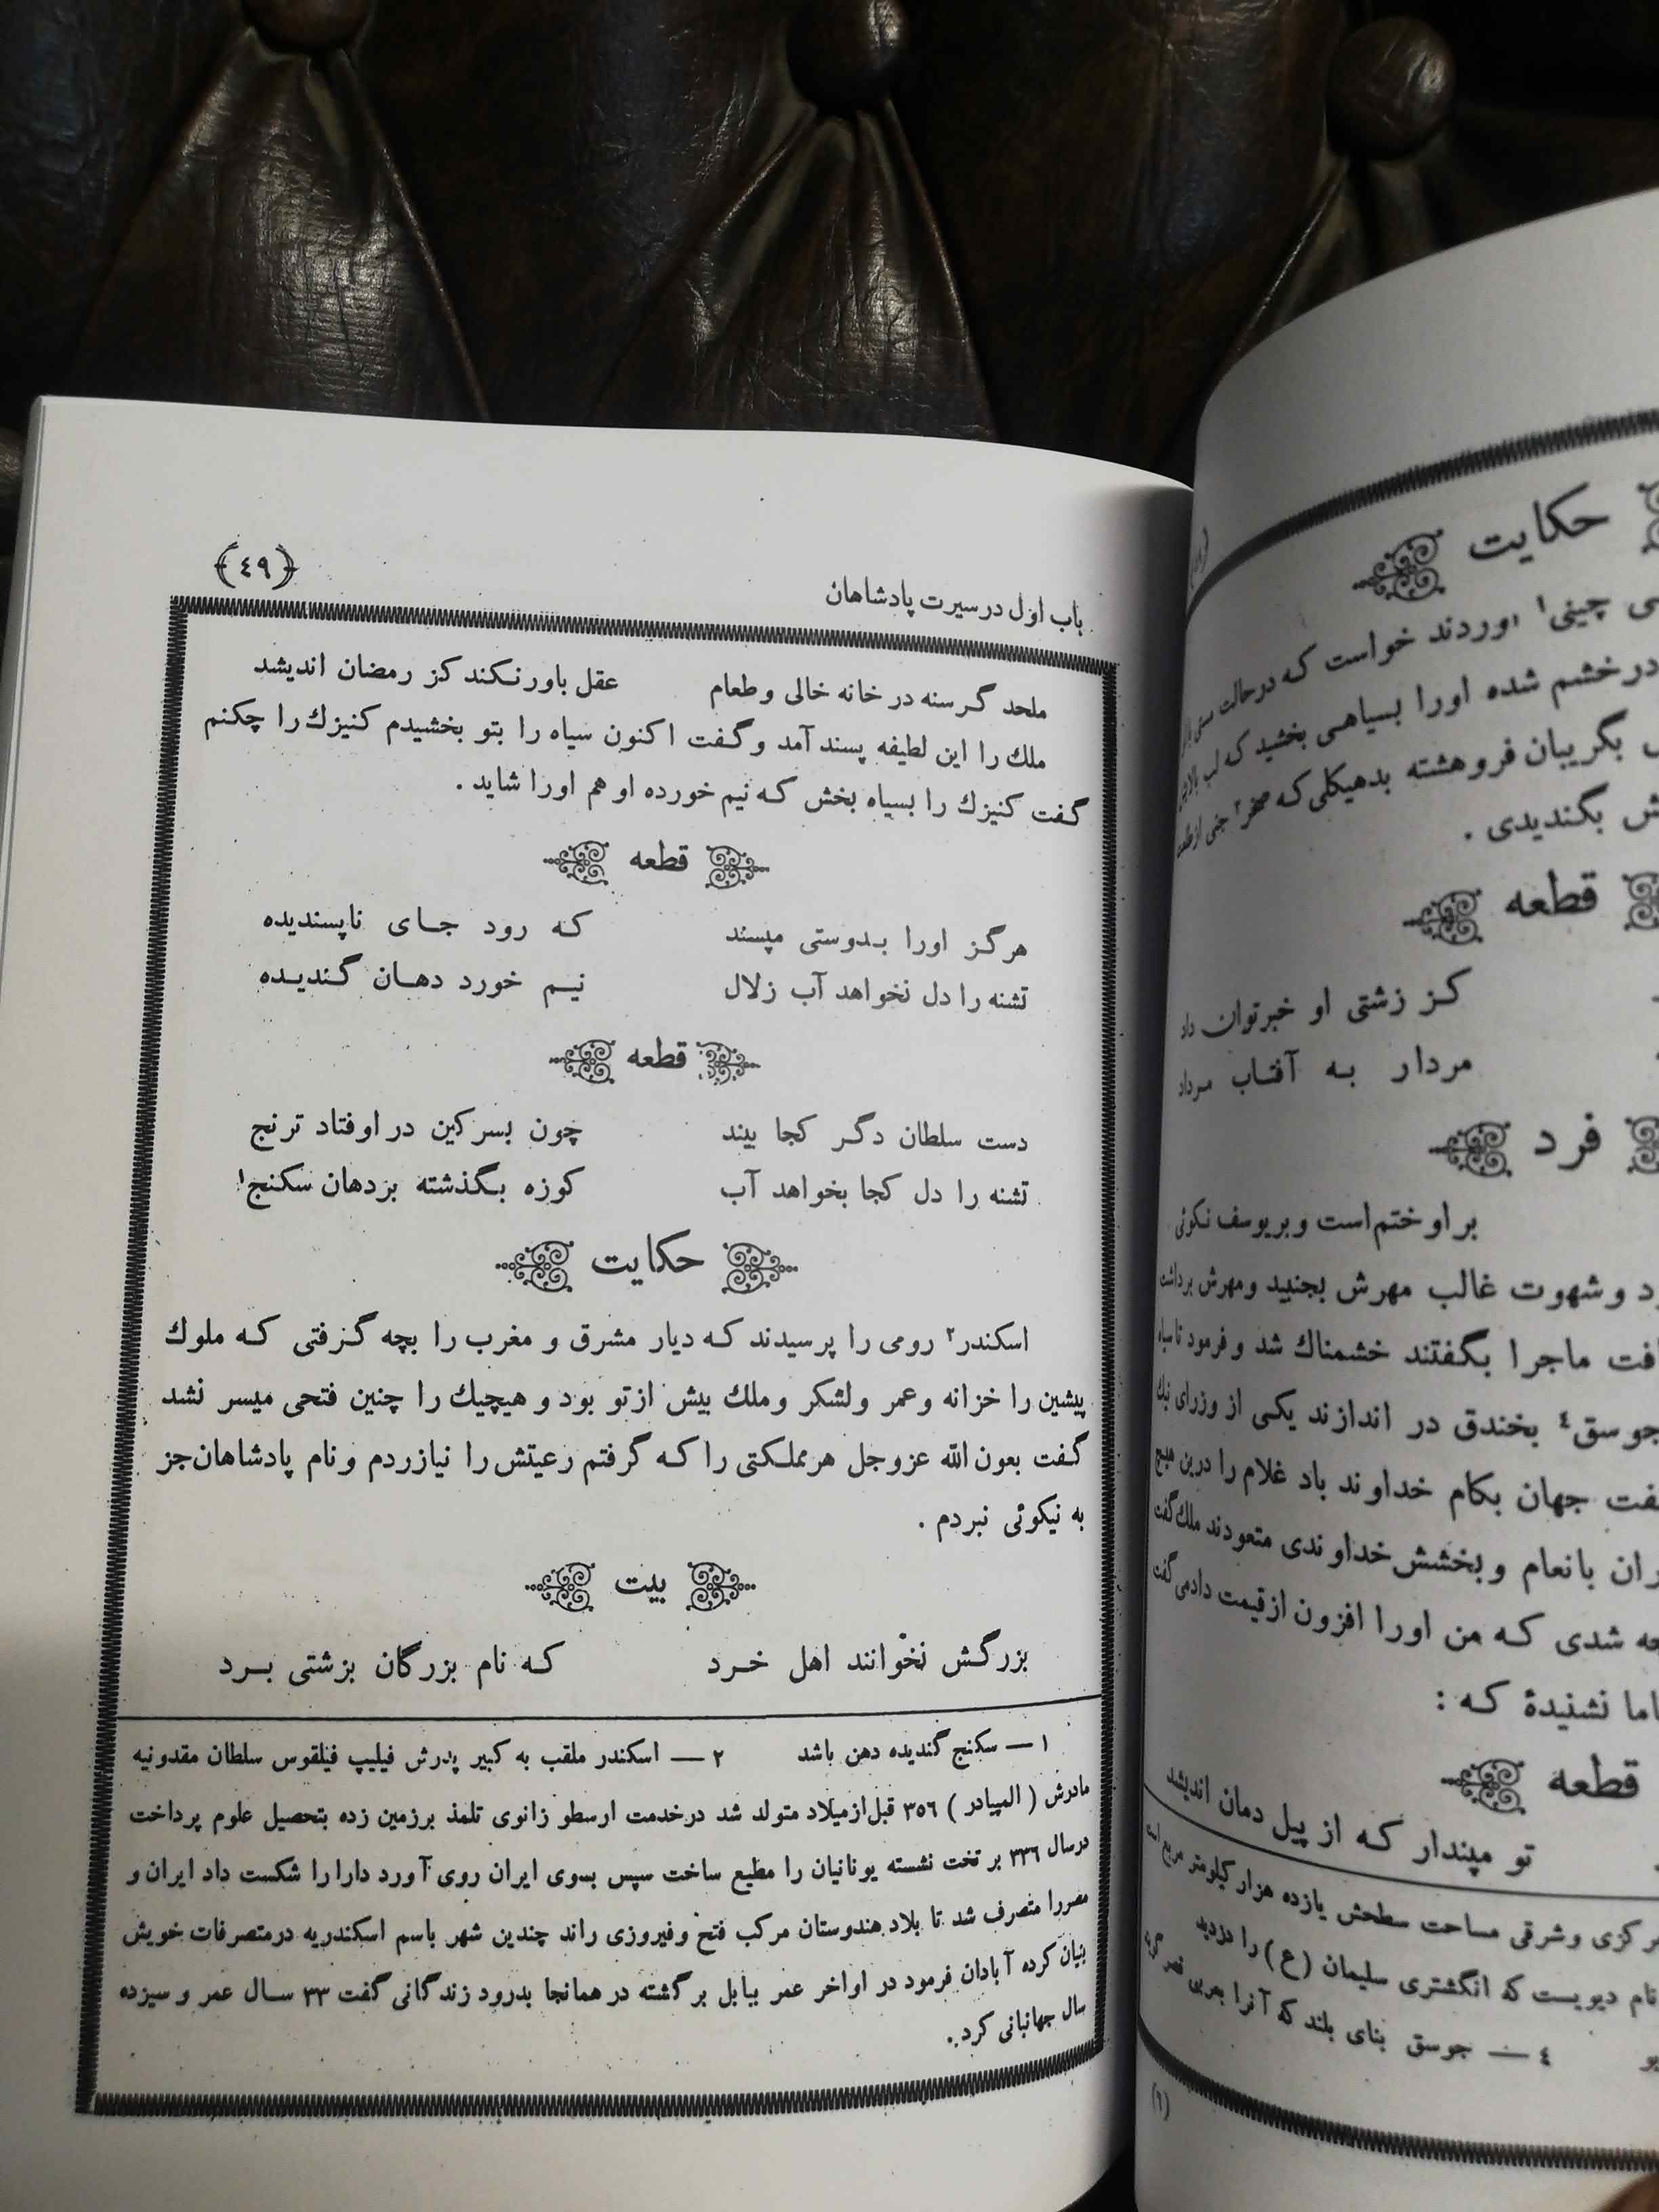 حکایت
ی چینی۱ آوردند خواست که در حالت مستی با
در خشم شده اورا بسیاهی بخشید که لب بالایش
بگریبان فروهشته بدهیکلی که صخر۲ جنی از طلعت
ش بگندیدی .
قطعه
کز زشتی او خبر توان داد
مردار به آفتاب مرداد
فرد
بر او ختم است و بر یوسف نکوئی
د و شهوت غالب مهرش بجنبید ومهرش برداشت
افت ماجرا بگفتند خشمناك شد و فرمود تا سیاه
جوسق٤ بخندق در اندازند یکی از وزرای نیك
گفت جهان بکام خداوند باد غلام را درین هیچ
ران بانعام و بخشش خداوندی متعودند ملك گفت
چه شدی که من اورا افزون از قیمت دادمی گفت
اما نشنیدهٔ که :
قطعه
تو مپندار که از پیل دمان اندیشد
مرکزی وشرقی مساحت سطحش یازده هزار کیلومتر مربع است
نام دیویست که انگشتری سلیمان (ع) را دزدید
٤ — جوسق بنای بلند که آنرا بعربی قصر گویند
(٦)
باب اول در سیرت پادشاهان
(٤٩)
ملحد گرسنه در خانه خالی و طعام عقل باور نکند کز رمضان اندیشد
ملك را این لطیفه پسند آمد و گفت اکنون سیاه را بتو بخشیدم کنیزك را چکنم
گفت کنیزك را بسیاه بخش که نیم خورده او هم اورا شاید .
قطعه
هرگز اورا بدوستی مپسند که رود جای ناپسندیده
تشنه را دل نخواهد آب زلال نیم خورد دهان گندیده
قطعه
دست سلطان دگر کجا بیند چون بسرکین در اوفتاد ترنج
تشنه را دل کجا بخواهد آب کوزه بگذشته بردهان سکنج۱
حکایت
اسکندر۲ رومی را پرسیدند که دیار مشرق و مغرب را بچه گرفتی که ملوك
پیشین را خزانه وعمر ولشکر وملك بیش از تو بود و هیچیك را چنین فتحی میسر نشد
گفت بعون الله عزوجل هر مملکتی را که گرفتم رعیتش را نیازردم و نام پادشاهان جز
به نیکوئی نبردم .
بیت
بزرگش نخوانند اهل خرد که نام بزرگان بزشتی برد
۱ — سکنج گندیده دهن باشد ۲ — اسکندر ملقب به کبیر پدرش فیلیپ فیلقوس سلطان مقدونیه
مادرش ( المپیادر ) ۳٥٦ قبل از میلاد متولد شد درخدمت ارسطو زانوی تلمذ برزمین زده بتحصیل علوم پرداخت
درسال ۳۳٦ بر تخت نشسته یونانیان را مطیع ساخت سپس بسوی ایران روی آورد دارا را شکست داد ایران و
مصررا متصرف شد تا بلاد هندوستان مرکب فتح وفیروزی راند چندین شهر باسم اسکندریه درمتصرفات خویش
بنیان کرده آبادان فرمود در اواخر عمر ببابل برگشته در همانجا بدرود زندگانی گفت ۳۳ سال عمر و سیزده
سال جهانبانی کرد .